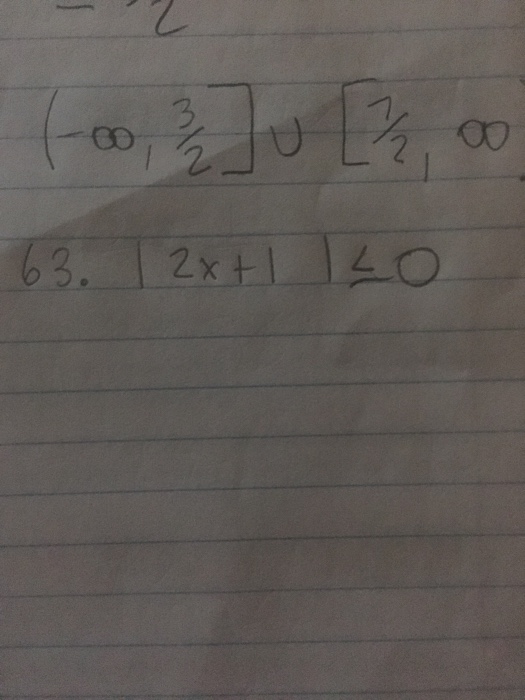 (-∞, 3/2] ∪ [7/2, ∞
63. | 2x+1 | ≤ 0